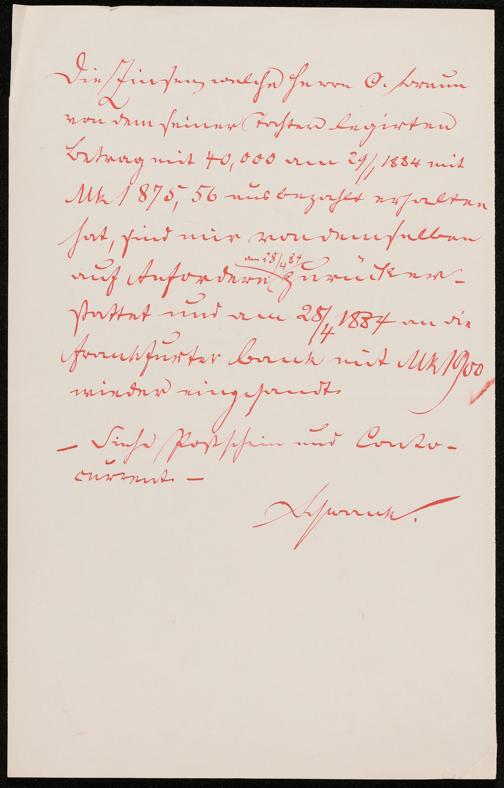 Die Zinsen, welche Herr O. Braun
von dem seiner Tochter legirten
Betrag mit 40,000 am 29/1 1884 mit
Mk 1875,56 ausbezahlt erhalten
hat, sind mir von demselben
am 28/4 84
auf Anfordern zurücker-
stattet und am 28/4 1884 an die
Frankfurter Bank mit Mk 1900
wieder eingesandt.
– Siehe Postschein und Conto-
current. –
Schwank.